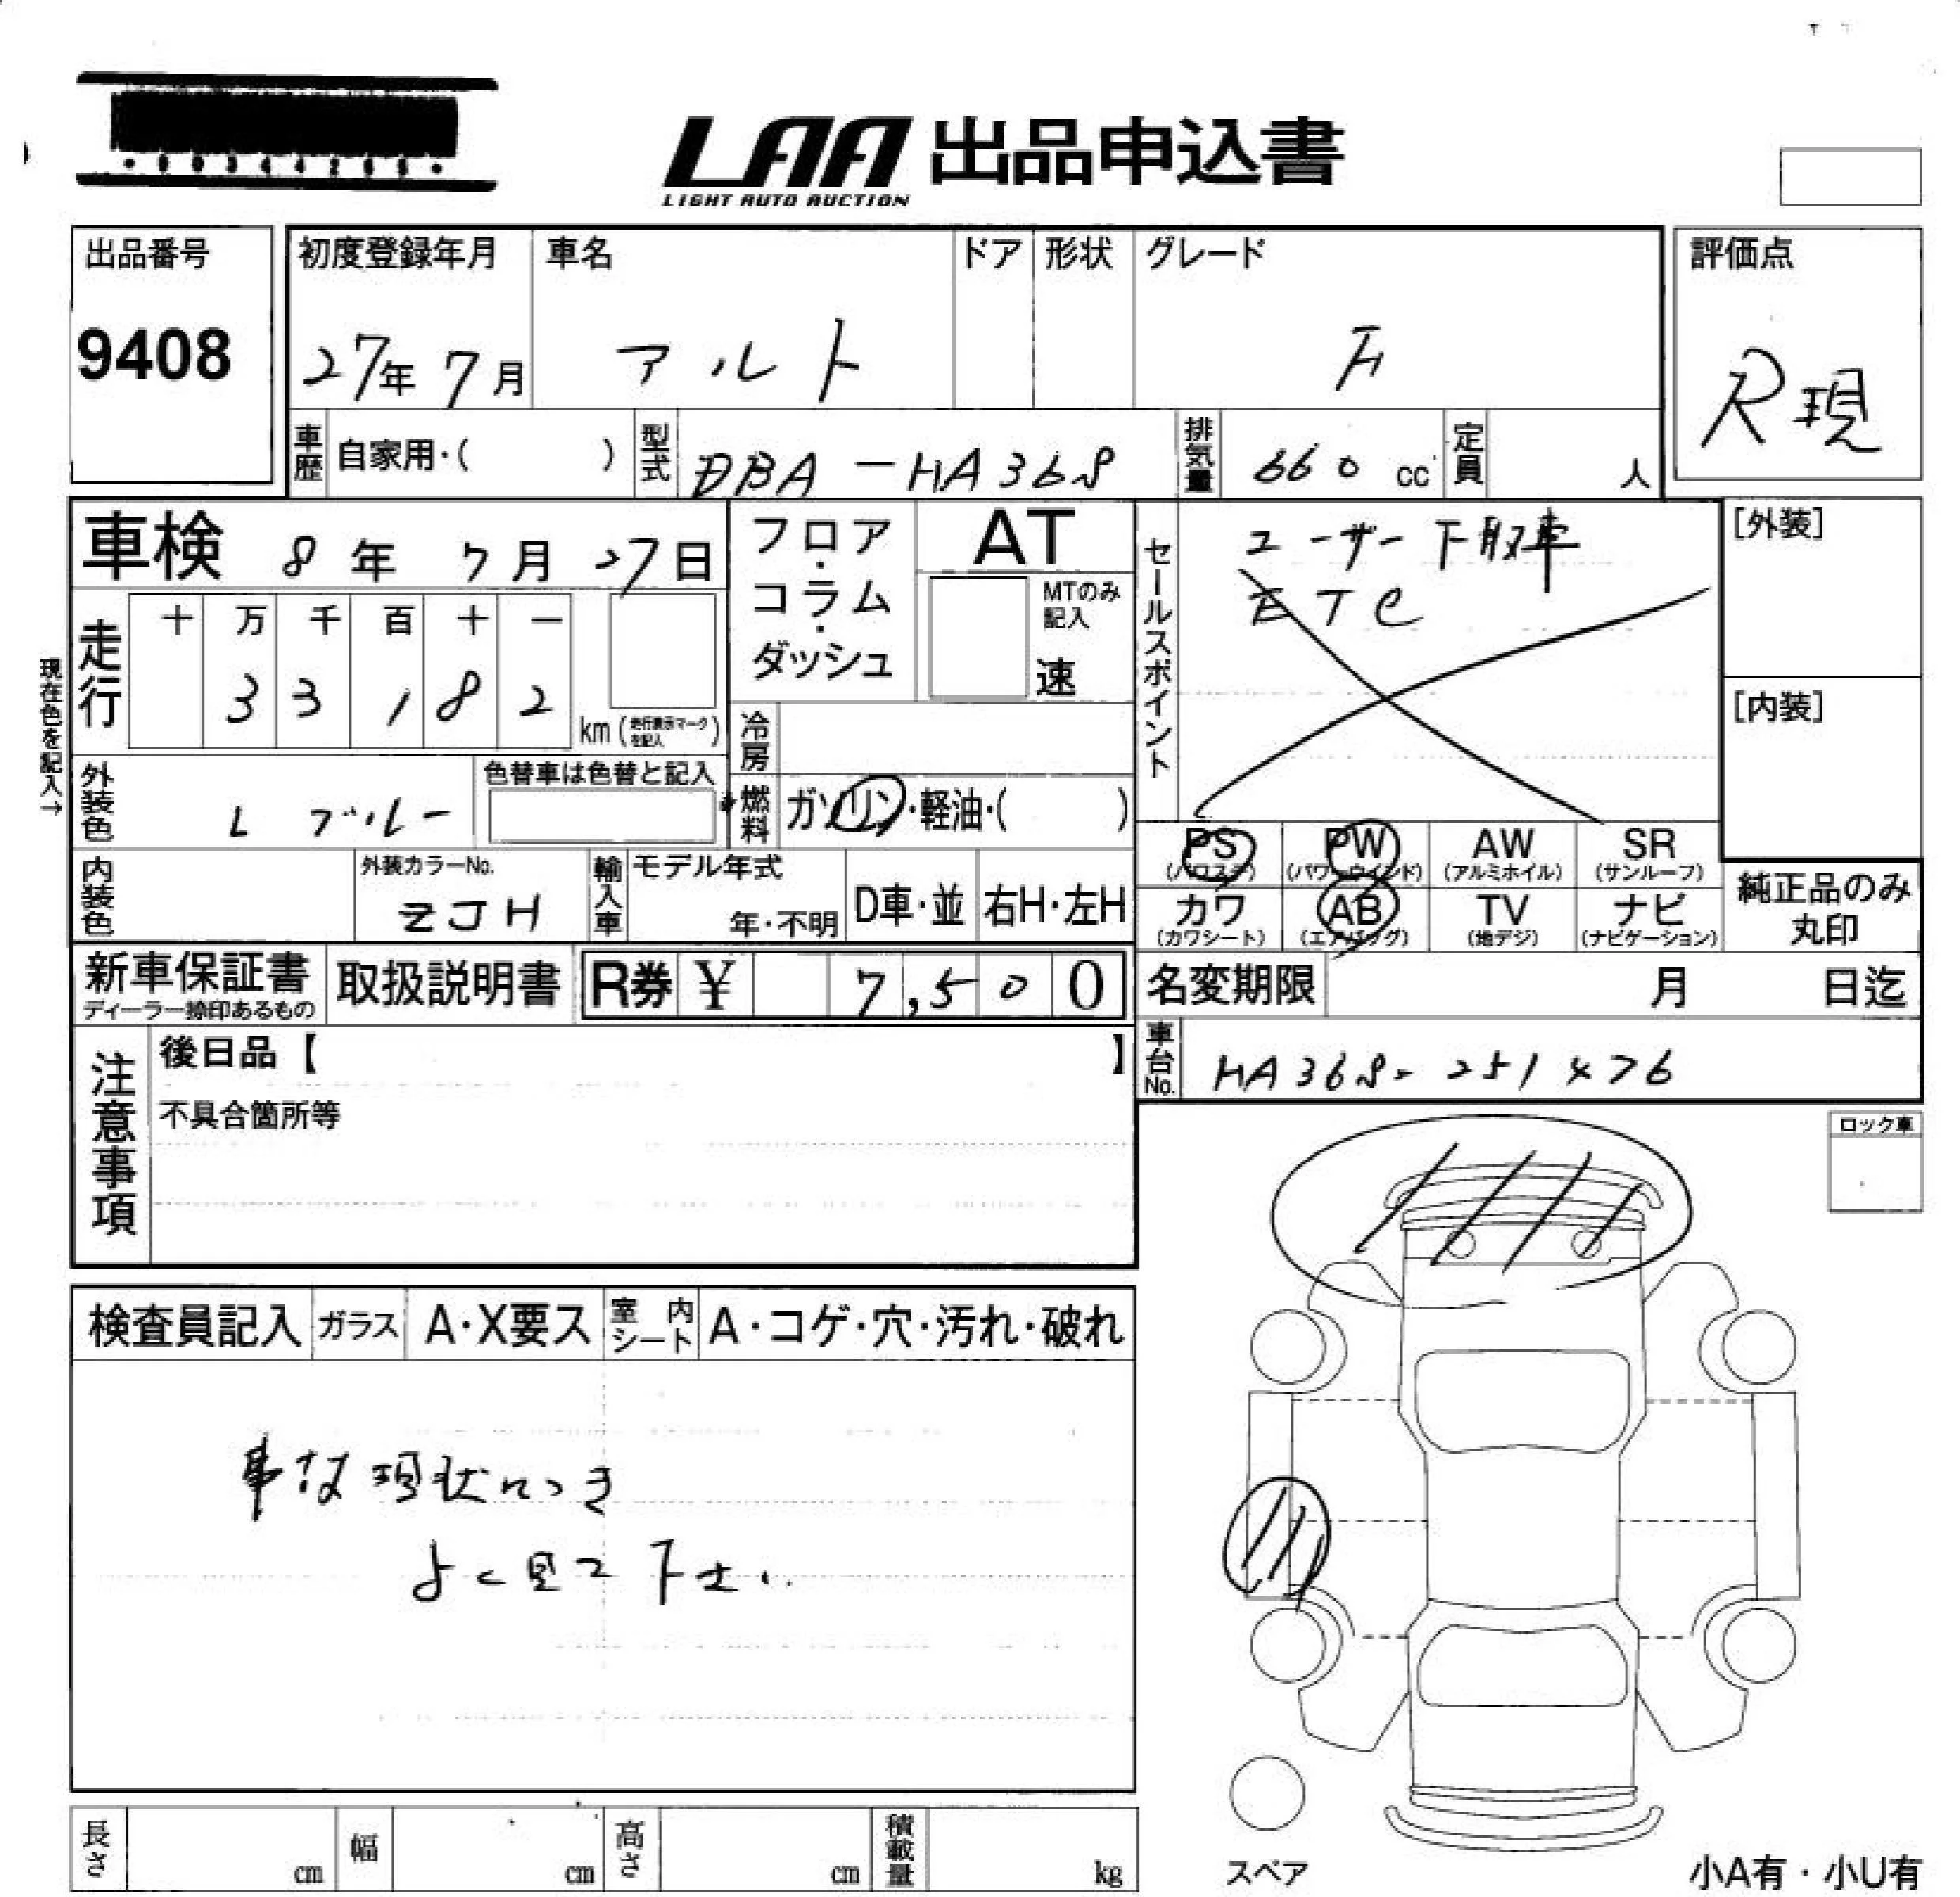 LAA 出品申込書
LIGHT AUTO AUCTION
出品番号
9408
初度登録年月
27年 7月
車名
アルト
ドア
形状
グレード
F
評価点
R現
車歴 自家用・( )
型式 DBA-HA36S
排気量 660 cc
定員 人
車検 8年 7月 27日
フロア・コラム・ダッシュ
AT
MTのみ記入
速
セールスポイント
ユーザー下取車
ETC
[外装]
[内装]
現在色を記入→
走行
十 万 千 百 十 一
3 3 1 8 2
km (走行表示マークを記入)
冷房
外装色 L ブルー
色替車は色替と記入
燃料 ガソリン・軽油・( )
PS (パワステ)
PW (パワーウインド)
AW (アルミホイル)
SR (サンルーフ)
カワ (カワシート)
AB (エアバッグ)
TV (地デジ)
ナビ (ナビゲーション)
純正品のみ丸印
内装色
外装カラーNo.
ZJH
輸入車
モデル年式
年・不明
D車・並
右H・左H
新車保証書
ディーラー捺印あるもの
取扱説明書
R券 ¥ 7,500
名変期限 月 日迄
車台No. HA36S-251476
注意事項
後日品【 】
不具合箇所等
ロック車
検査員記入
ガラス
A・X要ス
室内シート
A・コゲ・穴・汚れ・破れ
事故現状につき
よく見て下さい.
長さ cm
幅 cm
高さ cm
積載量 kg
スペア
小A有・小U有